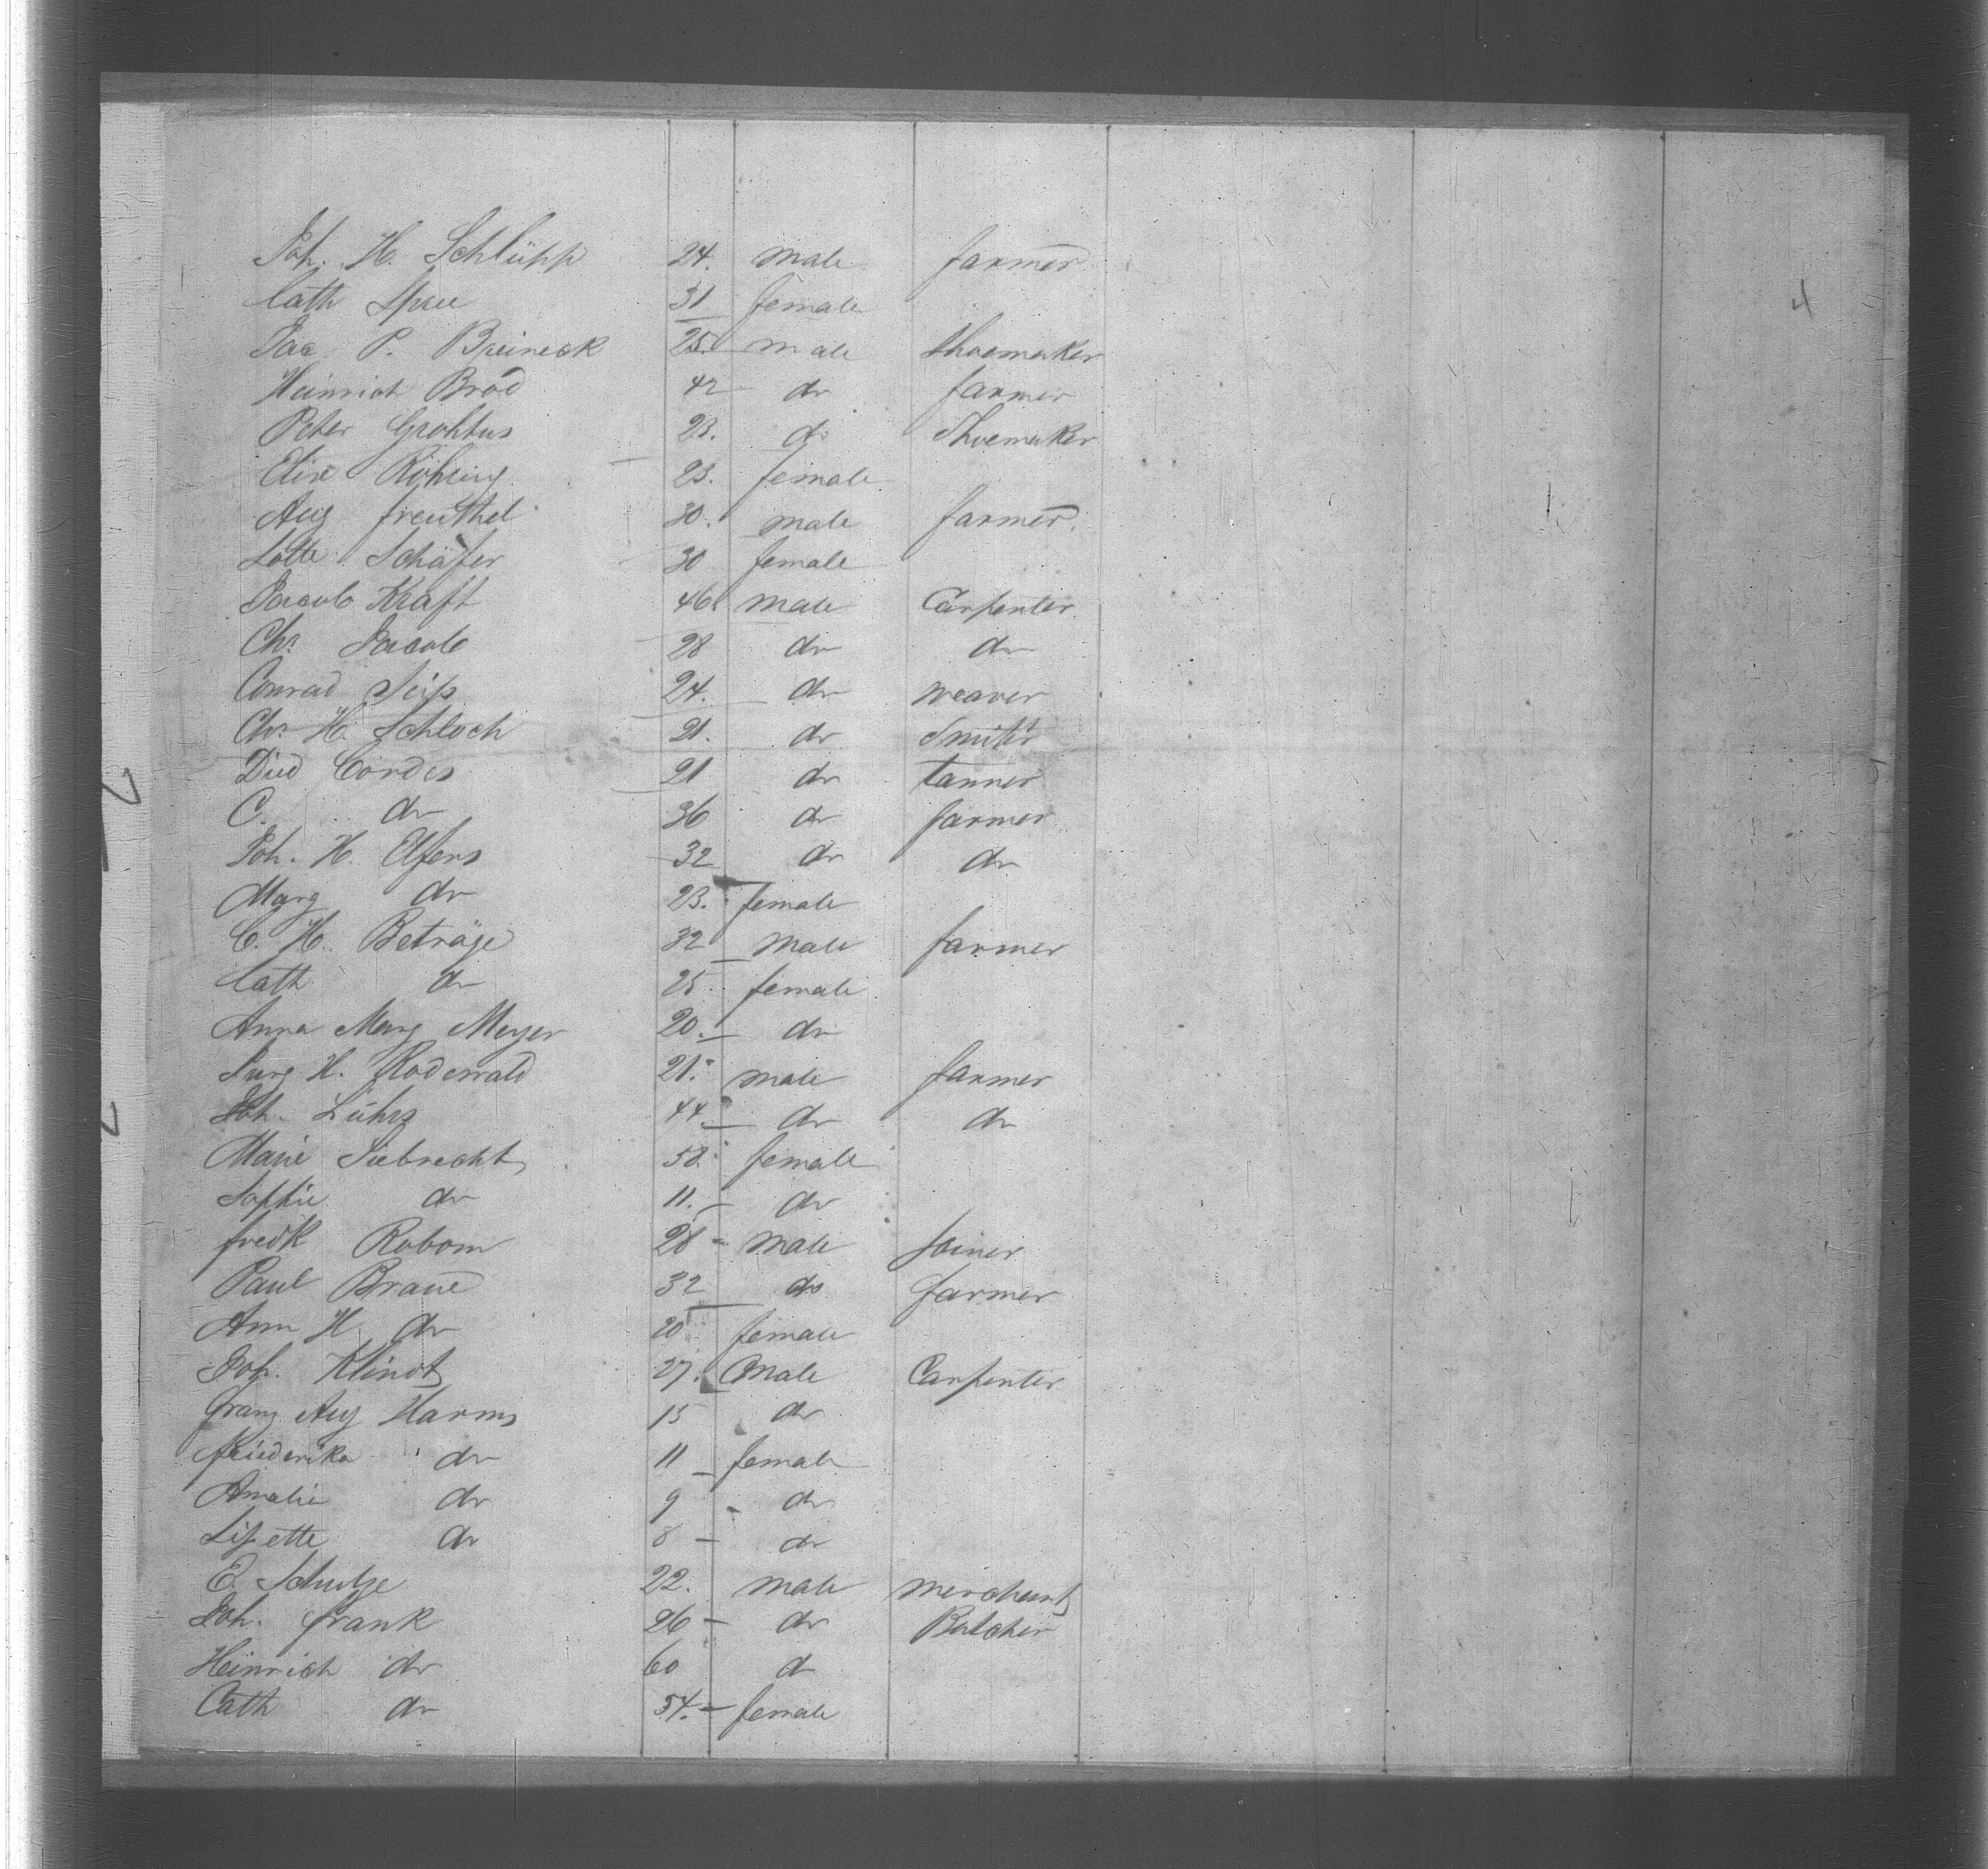 Joh. H. Schlüpp 24. male farmer
Cath Spree 31 female
Jac P. Breineck 25. male Shoemaker
Heinrich Brod 42 do farmer
Peter Grohtus 23. do Shoemaker
Elise Röhling 23. female
Aug Freuthel 30. male farmer.
Lotte Schäfer 30 female
Jacob Kraft 46 male Carpenter
Chr. Jacob 28 do do
Conrad Seiss 24. do weaver
Chr. H. Schloch 21. do Smith
Died Cordes 21 do tanner
C. do 36 do farmer
Joh. H. Elfers 32 do do
Marg do 23. female
C. H. Beträge 32 male farmer
Cath do 25. female
Anna Marg Meyer 20. do
Jurg H. Rodewald 21. male farmer
Joh. Lührs 44 do do
Marie Siebrecht 58. female
Sophie do 11. do
Fredk Robom 28 male Joiner
Paul Braue 32 do farmer
Ann H do 20 female
Joh. Klindt 27. Male Carpenter
Franz Aug Harms 15 do
Friederika do 11 female
Amalie do 9 do
Lisette do 8 do
E. Schulze 22. male merchant
Joh. Frank 26 do Butcher
Heinrich do 60 d
Cath do 54. female
4